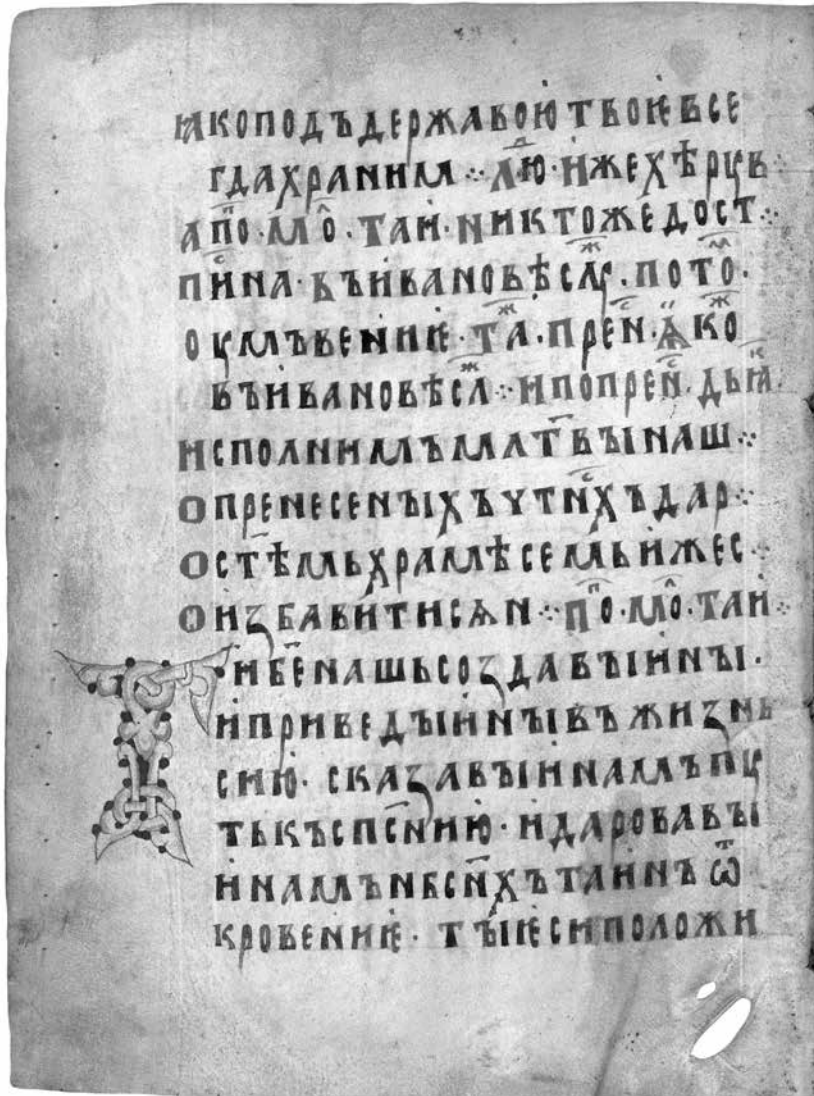 ꙗкоподъдержавоютвоѥвсе
гдахраним҃ ⁘ лю҃ⷣ·иже хѣрѹв
а по҃ⷫ·мо҃ⷧ·таи·никтожедост⁘
пи҃ⷭна·въивановѣслⷤ·пото҃ⷨ·
оумъвениѥ·та҃ⷤ·прен҃ⷭ·ꙗко҃ⷤ
въивановѣсл҃ⷤ⁘ипопрен҃ⷭ·дьꙗ҃ⷦ·
исполнимъмл҃твꙑнаш⁘
опренесенꙑхъчт҃ⷭнхъдар⁘
ост҃ѣмьхрамѣсемьижес⁘
оизбавитисѧн⁘ по҃ⷫ·мо҃ⷧ·таи⁘
Г҃ибе҃нашьсоздавꙑинꙑ·
иприведꙑинꙑвъжизнь
сию·сказавꙑинамъпѹ
тькъсп҃сению·идаровавꙑ
инамънбс҃нхътаинъѿ
кровениѥ·тꙑѥсиположи